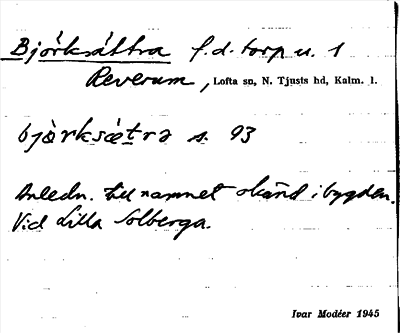 Björksättra f.d. torp u. 1
Reverum, Lofta sn, N. Tjusts hd, Kalm. l.
bjò̀rksætrɘ s. 93
Anledn. till namnet okänd i bygden.
Vid Lilla Solberga.
Ivar Modéer 1945